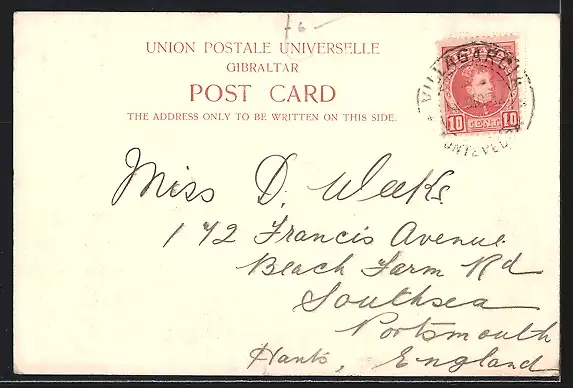 76-
UNION POSTALE UNIVERSELLE
GIBRALTAR
POST CARD
THE ADDRESS ONLY TO BE WRITTEN ON THIS SIDE.
VILLAGARCIA
10 CENT. 10
PONTEVEDRA
Miss D. Weeks.
172 Francis Avenue
Beach Farm Rd
Southsea
Portsmouth
Hants, England